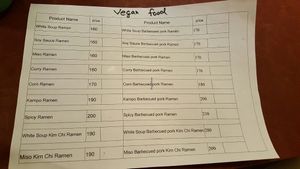 Vegan food
Product Name price Product Name price
White Soup Ramen 160 White Soup Barbecued pork Ramen 170
Soy Sauce Ramen 160 Soy Sauce Barbecued pork Ramen 170
Miso Ramen 160 Miso Barbecued pork Ramen 170
Curry Ramen 160 Curry Barbecued pork Ramen 170
Corn Ramen 170 Corn Barbecued pork Ramen
Kampo Ramen 190 Kampo Barbecued pork Ramen 200
Spicy Ramen 200 Spicy Barbecued pork Ramen
White Soup Kim Chi Ramen 190 White Soup Barbecued pork Kim Chi Ramen 200
Miso Kim Chi Ramen 190 Miso Barbecued pork Kim Chi Ramen 200